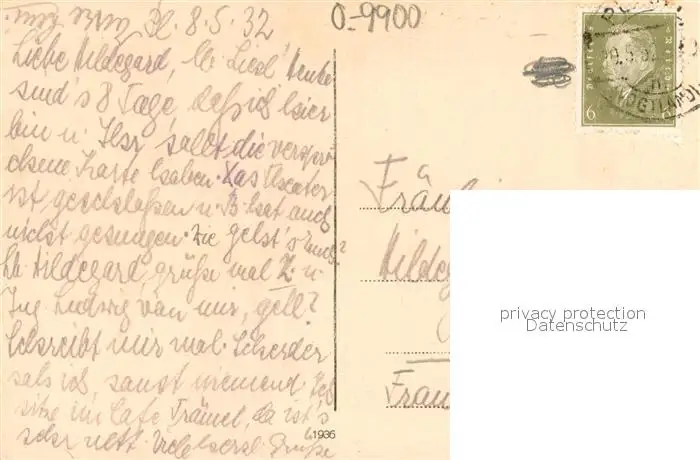 Pl. 8.5.32
Liebe Hildegard, lb. Liesl! Heute
sind's 8 Tage, daß ich hier
bin u. Ihr sollt die verspro-
chene Karte haben. Das Theater
ist geschloßen u. B. hat auch
nicht gesungen. Wie geht's Euch?
Lb. Hildegard, grüße mal Z. u.
Ludwig von mir, gell?
Schreibt mir mal.
sonst niemend. Ich
sitze im Cafe Trömel, da ist's
sehr nett. Viele herzl. Grüße
1936
0-9900
6 6
Fräu
Hildeg
Fran
privacy protection
Datenschutz